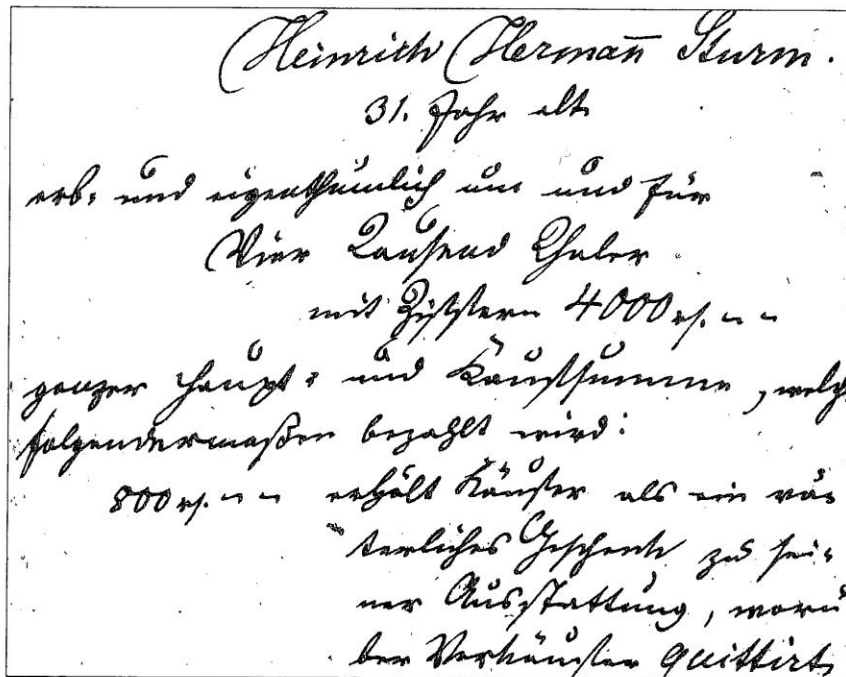 Heinrich Hermañ Sturm.
31. Jahr alt
erb- und eigenthümlich um und für
Vier Tausend Thaler
mit Ziffern 4000 rf. " "
ganzer Haupt- und Kaufsumme, welche
folgendermaßen bezahlt wird:
800 rf. " " erhält Käufer als ein vä-
terliches Geschenk zu sei-
ner Ausstattung, worü
ber Verkäufer quittirt,